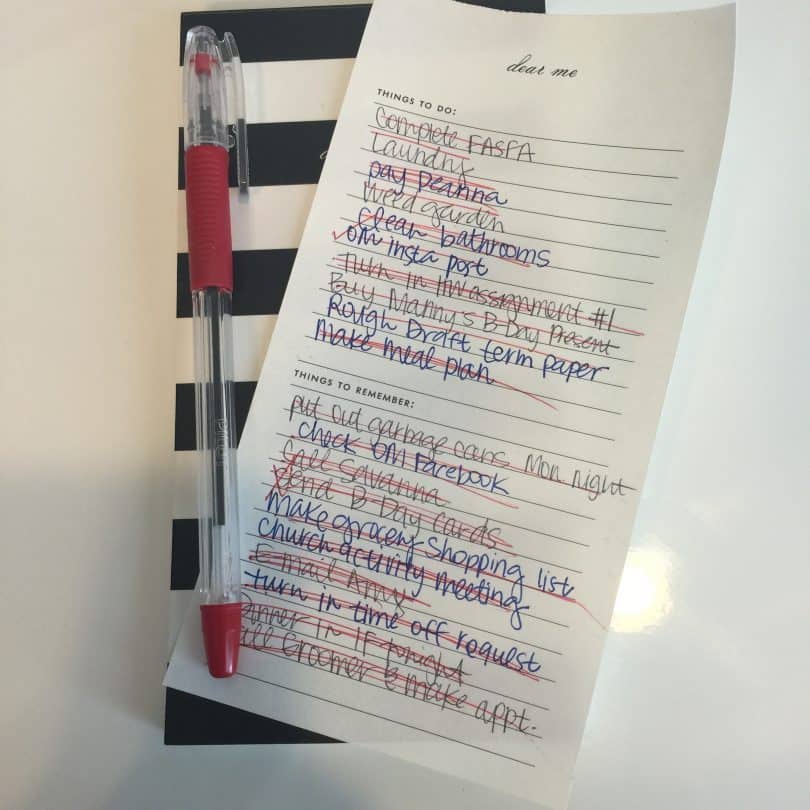 dear me
THINGS TO DO:
Complete FASFA
Laundry
pay Deanna
Weed garden
Clean bathrooms
OM insta post
Turn in HW assignment #1
Buy Manny's B-Day Present
Rough Draft term paper
Make meal plan
THINGS TO REMEMBER:
put out garbage cans Mon. night
Check OM Facebook
Call Savanna
Send B-Day cards
Make grocery shopping list
Church activity meeting
E-mail Amy
turn in time off request
Dinner in IF tonight
Call Groomer & make appt.
Pilot